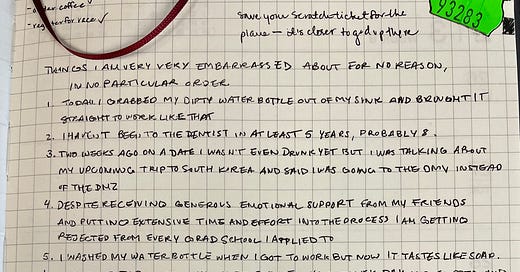 - order coffee ✓
- register for race ✓
save your scratch ticket for the
plane – it's closer to god up there
93283
THINGS I AM VERY VERY EMBARRASSED ABOUT FOR NO REASON,
IN NO PARTICULAR ORDER.
1. TODAY I GRABBED MY DIRTY WATER BOTTLE OUT OF MY SINK AND BROUGHT IT
STRAIGHT TO WORK LIKE THAT
2. I HAVEN'T BEEN TO THE DENTIST IN AT LEAST 5 YEARS, PROBABLY 8.
3. TWO WEEKS AGO ON A DATE I WASN'T EVEN DRUNK YET BUT I WAS TALKING ABOUT
MY UPCOMING TRIP TO SOUTH KOREA AND SAID I WAS GOING TO THE DMV INSTEAD
OF THE DMZ
4. DESPITE RECEIVING GENEROUS EMOTIONAL SUPPORT FROM MY FRIENDS
AND PUTTING EXTENSIVE TIME AND EFFORT INTO THE PROCESS I AM GETTING
REJECTED FROM EVERY GRAD SCHOOL I APPLIED TO
5. I WASHED MY WATER BOTTLE WHEN I GOT TO WORK BUT NOW IT TASTES LIKE SOAP.